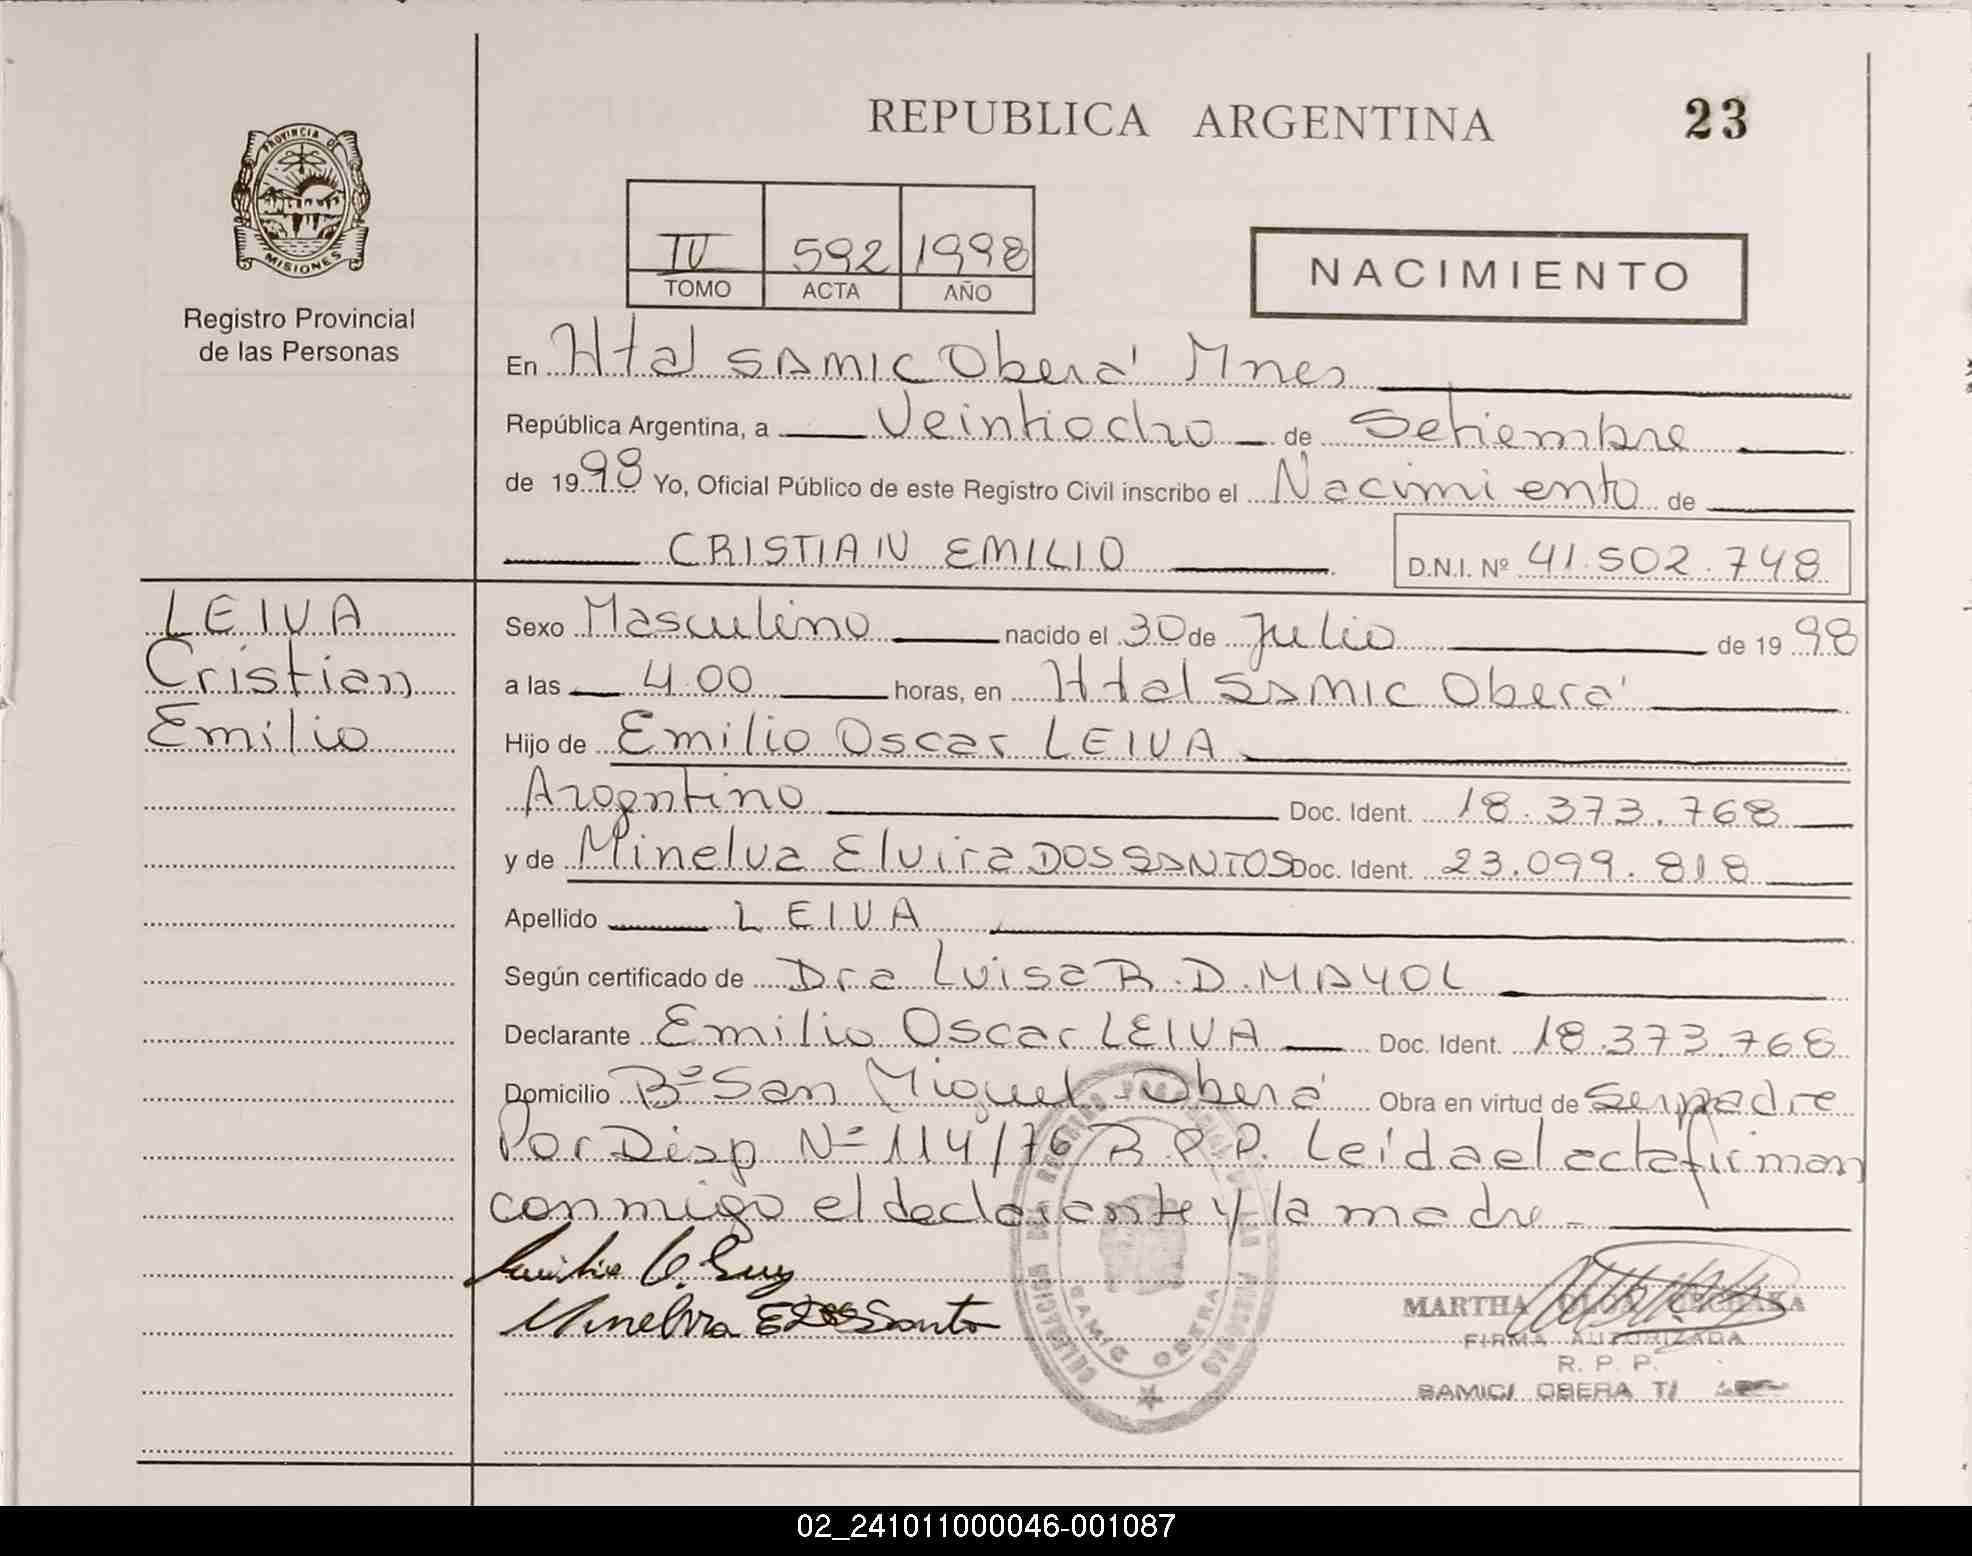 REPUBLICA ARGENTINA 23
PROVINCIA DE
MISIONES
Registro Provincial
de las Personas
IV 592 1998
TOMO ACTA AÑO
NACIMIENTO
En Htal SAMIC Oberá Mnes
República Argentina, a Veintiocho de Setiembre
de 1998 Yo, Oficial Público de este Registro Civil inscribo el Nacimiento de
CRISTIAN EMILIO D.N.I. Nº 41.502.748
LEIVA
Cristian
Emilio
Sexo Masculino nacido el 30 de Julio de 1998
a las 4.00 horas, en Htal SAMIC Oberá
Hijo de Emilio Oscar LEIVA
Argentino Doc. Ident. 18.373.768
y de Minelva Elvira DOS SANTOS Doc. Ident. 23.099.818
Apellido LEIVA
Según certificado de Dra Luisa R.D. MAYOL
Declarante Emilio Oscar LEIVA Doc. Ident. 18.373.768
Domicilio Bº San Miguel - Oberá Obra en virtud de ser padre
Por Disp Nº 114/76 R.P.P. Leída el acta firman
conmigo el declarante y la madre -
Minelva E Dos Santo
SAMIC OBERA
MARTHA
FIRMA AUTORIZADA
R. P. P.
SAMIC/ OBERA T/
02_241011000046-001087